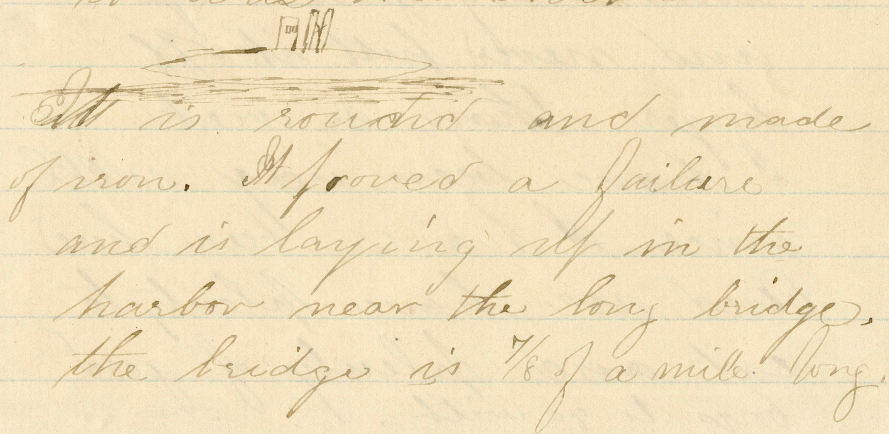 It is round and made
of iron. It proved a failure
and is laying up in the
harbor near the long bridge.
the bridge is 7/8 of a mile long.